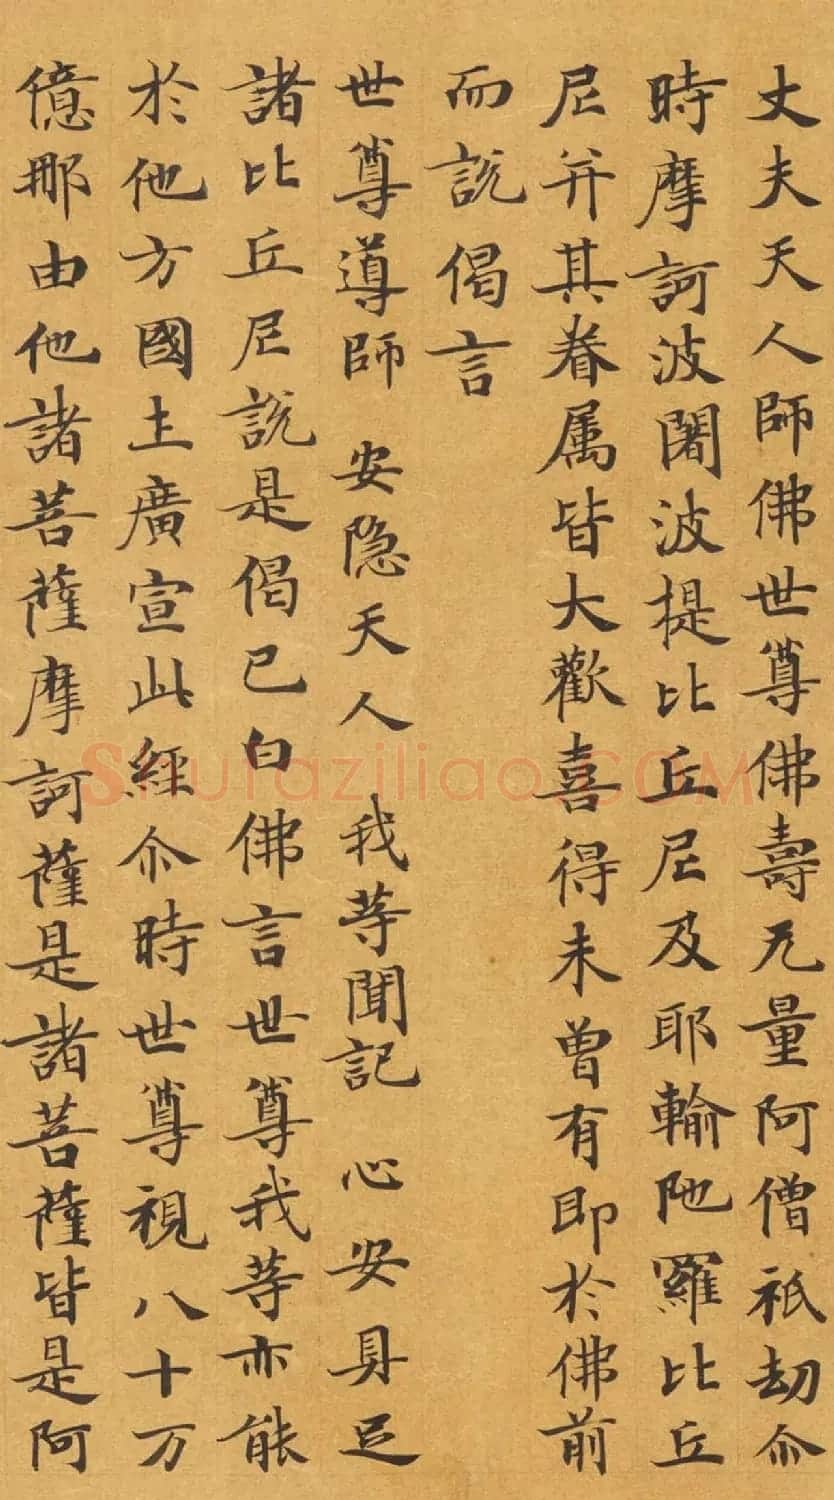 丈夫天人師佛世尊佛壽无量阿僧祇劫尒
時摩訶波闍波提比丘尼及耶輸陁羅比丘
尼并其眷属皆大歡喜得未曾有即於佛前
而說偈言
世尊導師 安隐天人 我等聞記 心安具足
諸比丘尼說是偈已白佛言世尊我等亦能
於他方國土廣宣此經尒時世尊視八十万
億那由他諸菩薩摩訶薩是諸菩薩皆是阿
Shufaziliao.COM